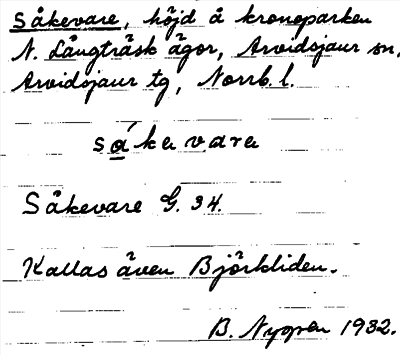 Såkevare, höjd å kronoparken
N. Långträsk ägor, Arvidsjaur sn,
Arvidsjaur tg, Norrb. l.
sá̱kevare
Såkevare G. 34.
Kallas även Björkliden.
B. Nygren 1932.